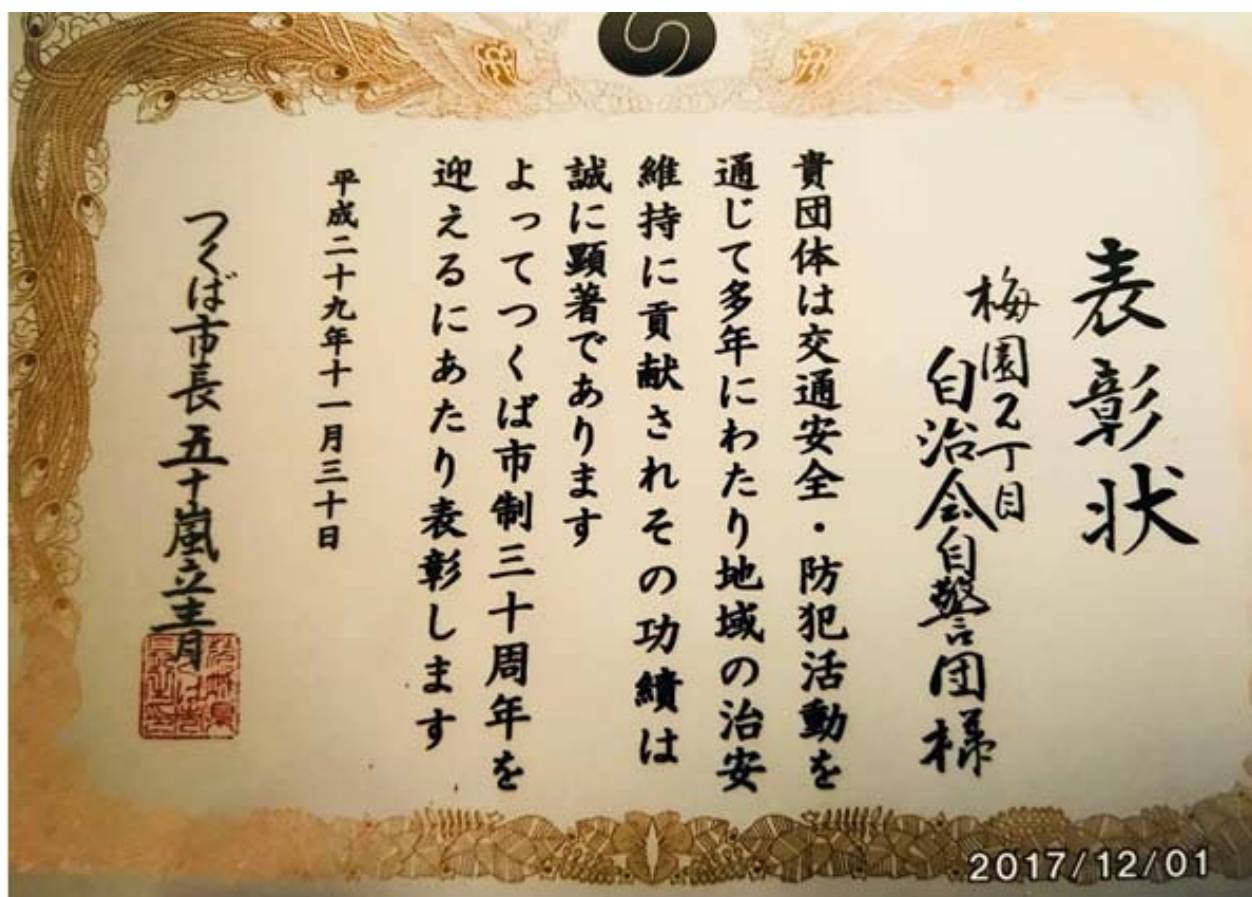 表彰状
梅園2丁目
自治会自警団様
貴団体は交通安全・防犯活動を
通じて多年にわたり地域の治安
維持に貢献されその功績は
誠に顕著であります
よってつくば市制三十周年を
迎えるにあたり表彰します
平成二十九年十一月三十日
つくば市長五十嵐立青
2017/12/01